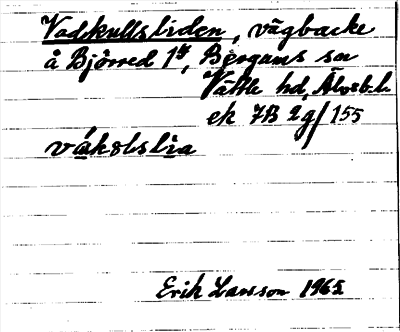 Vadkullsliden, vägbacke
å Björred 1:4, Bergums sn
Vättle hd, Älvsb. l.
ek 7B 2g/155
vákolslìa
Erik Larsson 1965